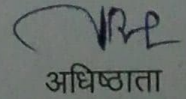 अधिष्ठाता